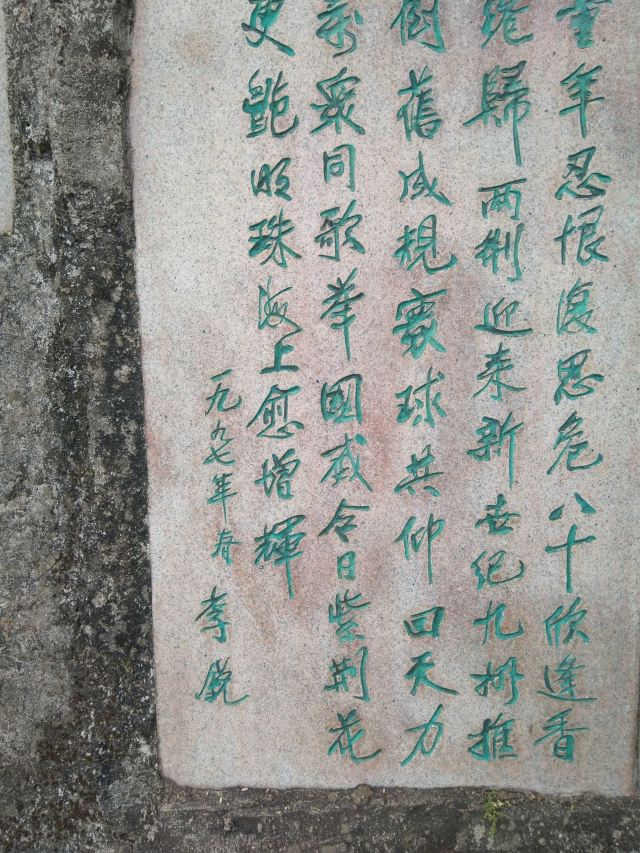 童年忍恨復思危八十欣逢香
港歸两制迎来新世纪九州推
倒舊成規寰球共仰回天力
萬衆同歌举國威今日紫荆花
更艷明珠海上愈增輝
一九九七年春 李锐